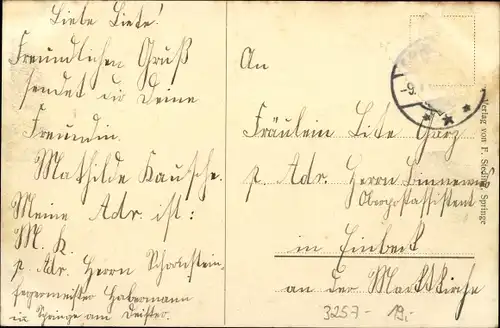 Liebe Liete!
Freundlichen Gruß
sendet dir Deine
Freundin
Mathilde Kausche.
Meine Adr. ist:
M. K.
p. Adr. Herrn Schornstein-
fegermeister Habermann
in Springe am Deister.
An
Fräulein Lite Garz
p. Adr. Herrn Binnewie
Oberpostassistent
in Einbeck
an der Marktkirche
3257- 19.-
Verlag von F. Springe